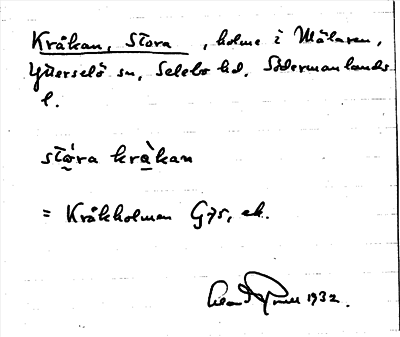 Kråkan, Stora, holme i Mälaren,
Ytterselö sn, Selebo hd, Södermanlands
l.
stó̰ra krà̱kan
= Kråkholmen G75, ek.
1932.